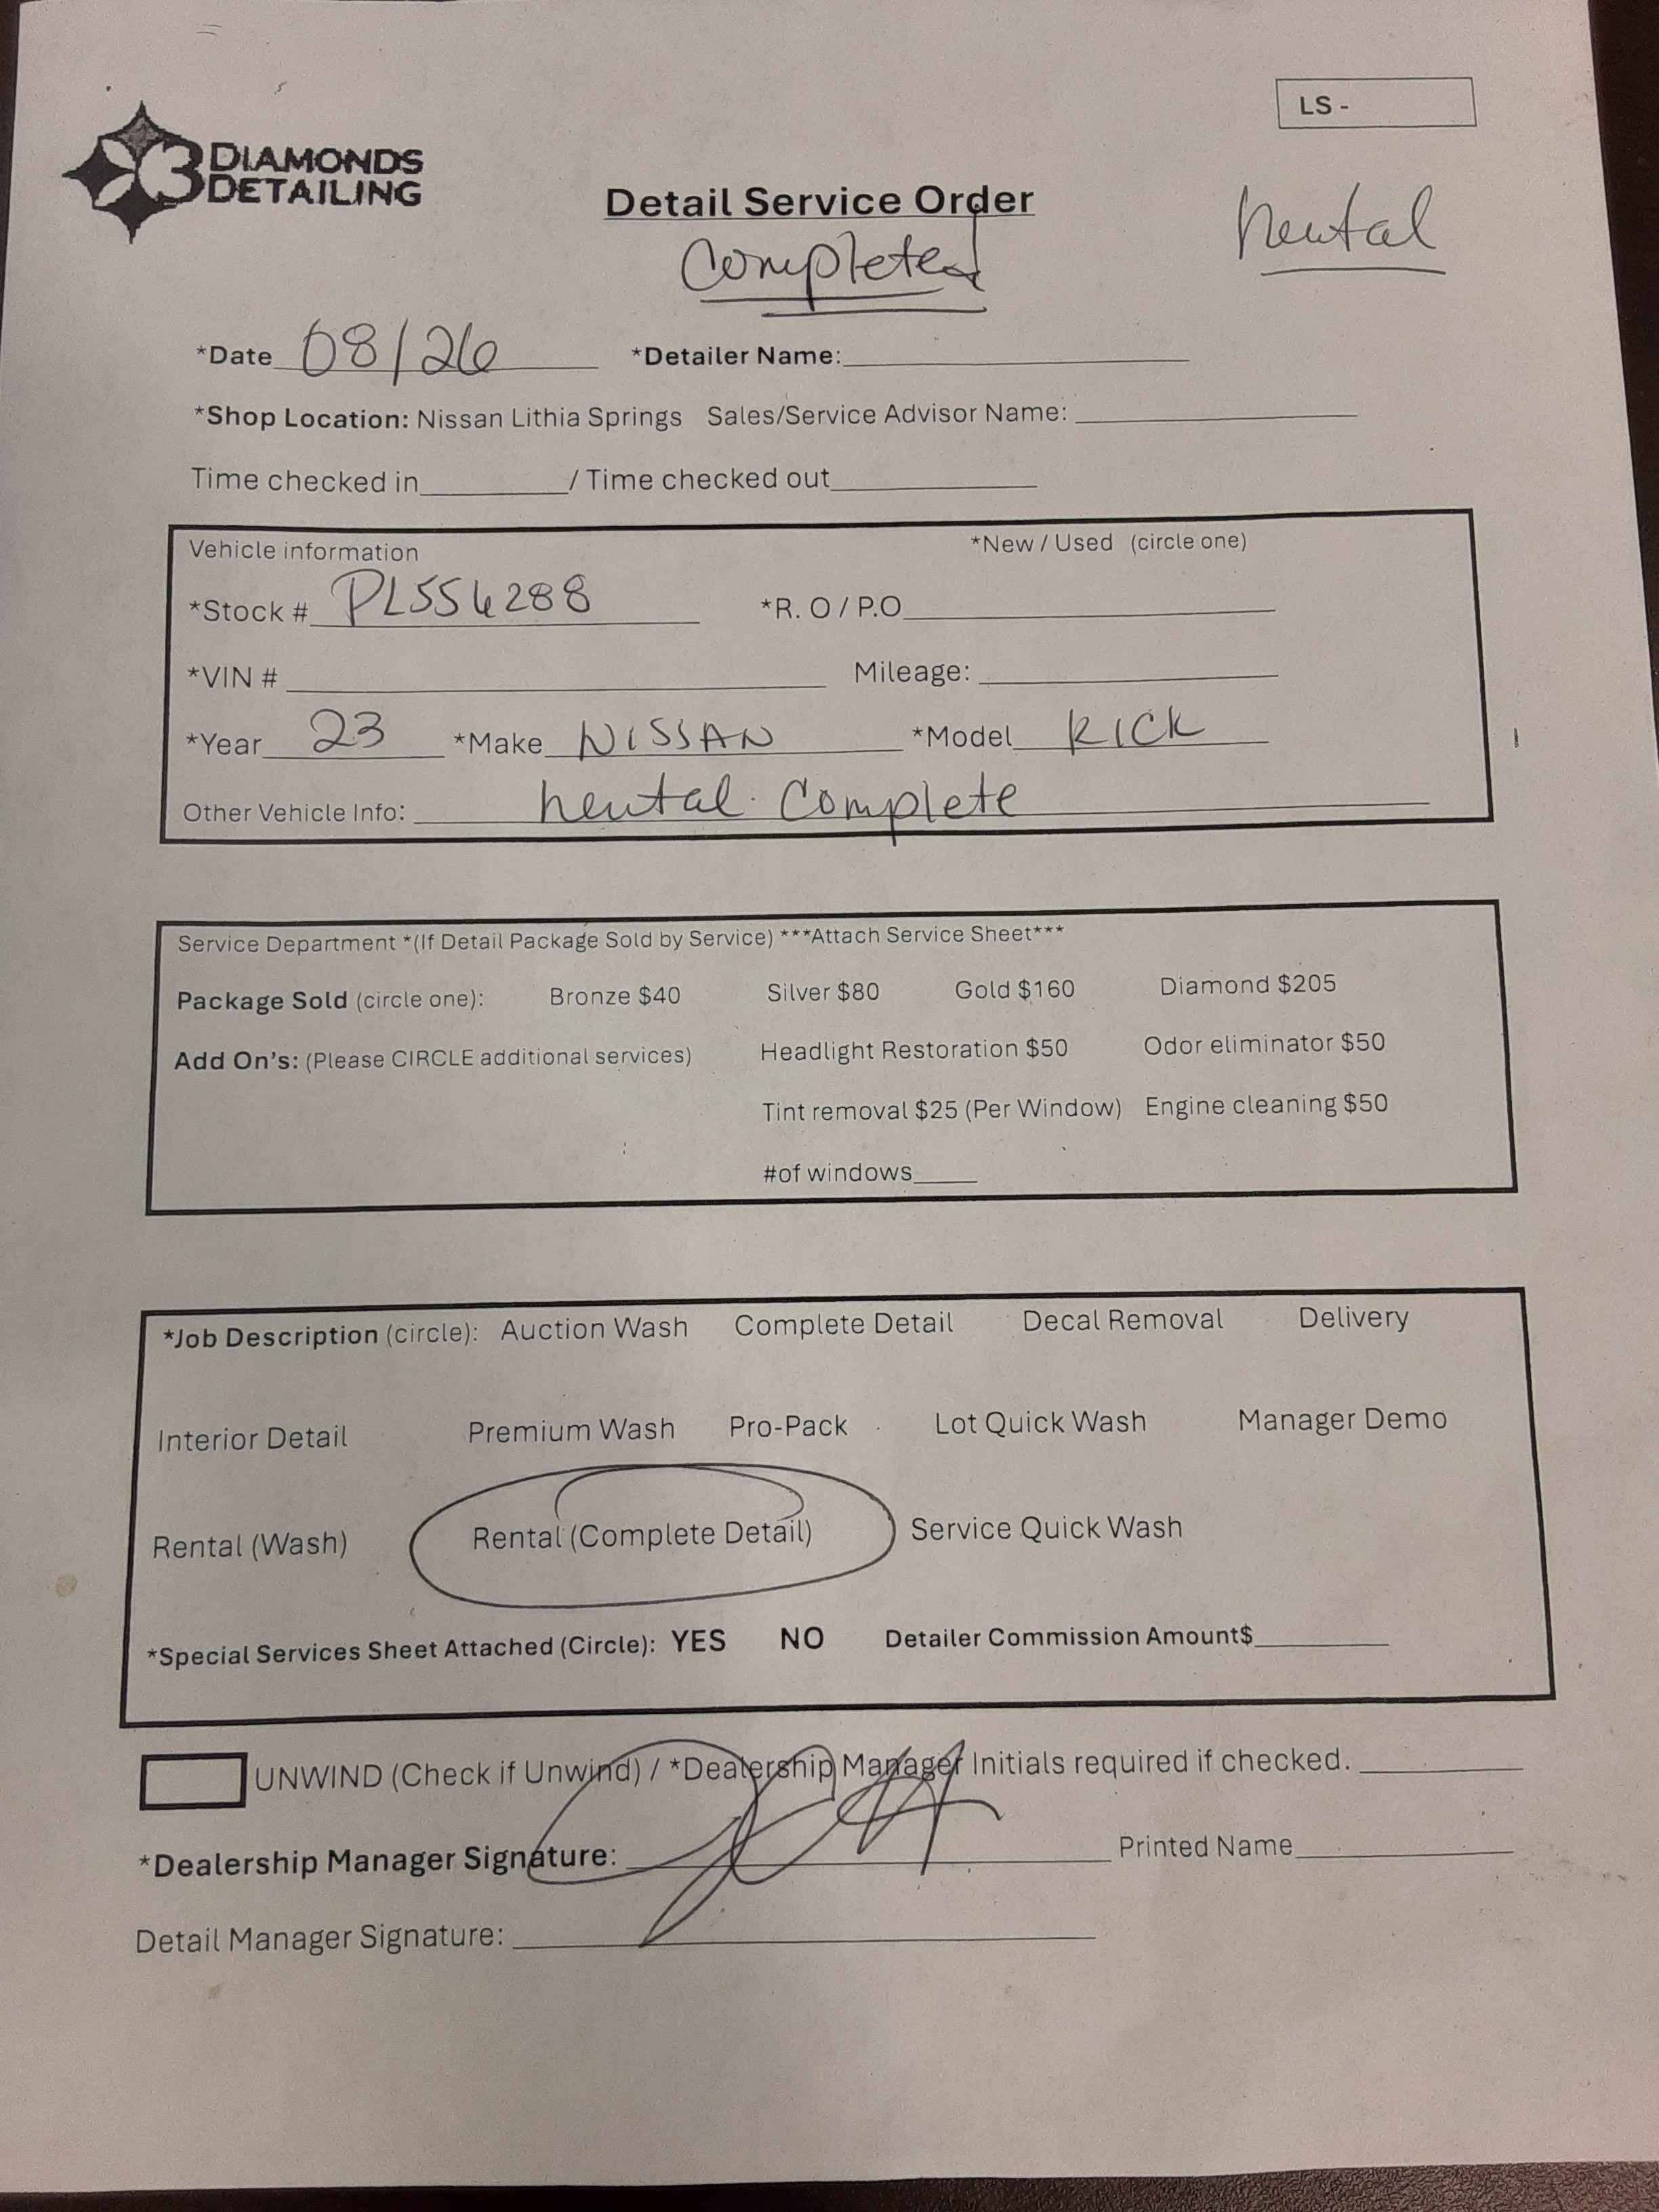 LS -
3 DIAMONDS
DETAILING
Detail Service Order
Rental
Completed
*Date 08/26 *Detailer Name:
*Shop Location: Nissan Lithia Springs Sales/Service Advisor Name:
Time checked in / Time checked out
Vehicle information *New / Used (circle one)
*Stock # PL556288 *R. O / P.O
*VIN # Mileage:
*Year 23 *Make NISSAN *Model KICK
Other Vehicle Info: Rental Complete
Service Department *(If Detail Package Sold by Service) ***Attach Service Sheet***
Package Sold (circle one): Bronze $40 Silver $80 Gold $160 Diamond $205
Add On's: (Please CIRCLE additional services) Headlight Restoration $50 Odor eliminator $50
Tint removal $25 (Per Window) Engine cleaning $50
#of windows
*Job Description (circle): Auction Wash Complete Detail Decal Removal Delivery
Interior Detail Premium Wash Pro-Pack Lot Quick Wash Manager Demo
Rental (Wash) Rental (Complete Detail) Service Quick Wash
*Special Services Sheet Attached (Circle): YES NO Detailer Commission Amount$
UNWIND (Check if Unwind) / *Dealership Manager Initials required if checked.
*Dealership Manager Signature: Printed Name
Detail Manager Signature: